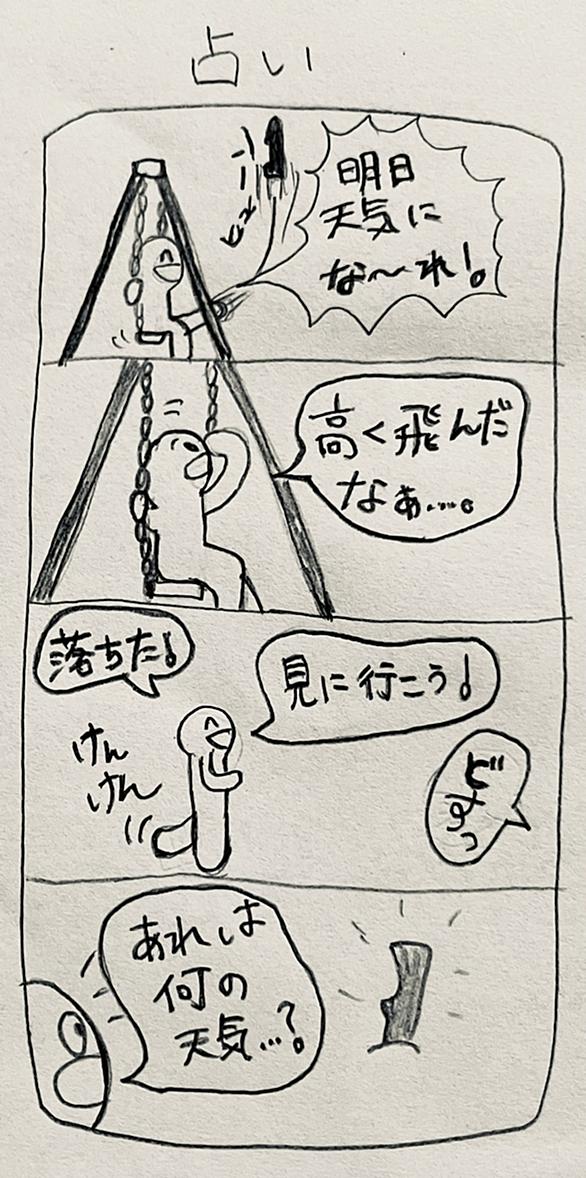 占い
明日
天気に
な〜れ!。
ヒューン
高く飛んだ
なぁ…。
落ちた!
見に行こう!
けん
けん
どすっ
あれは
何の
天気…?。